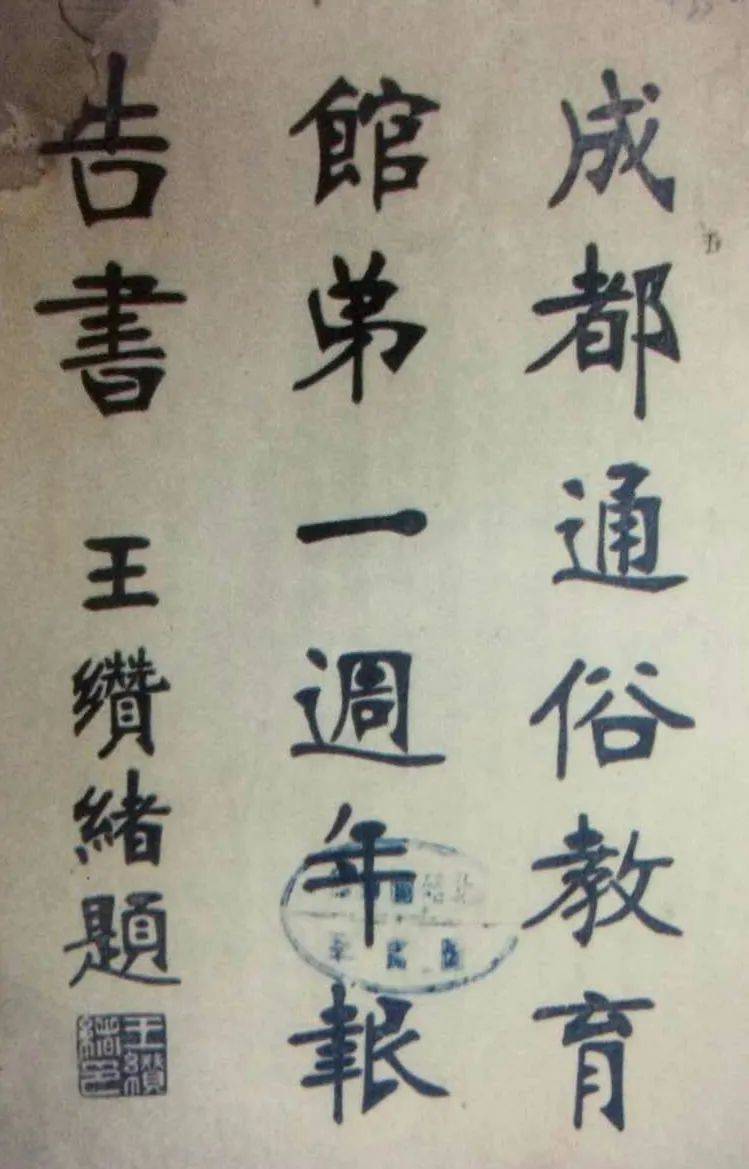 成都通俗教育
館弟一週年報
告書 王纘緒題
王纘緒印